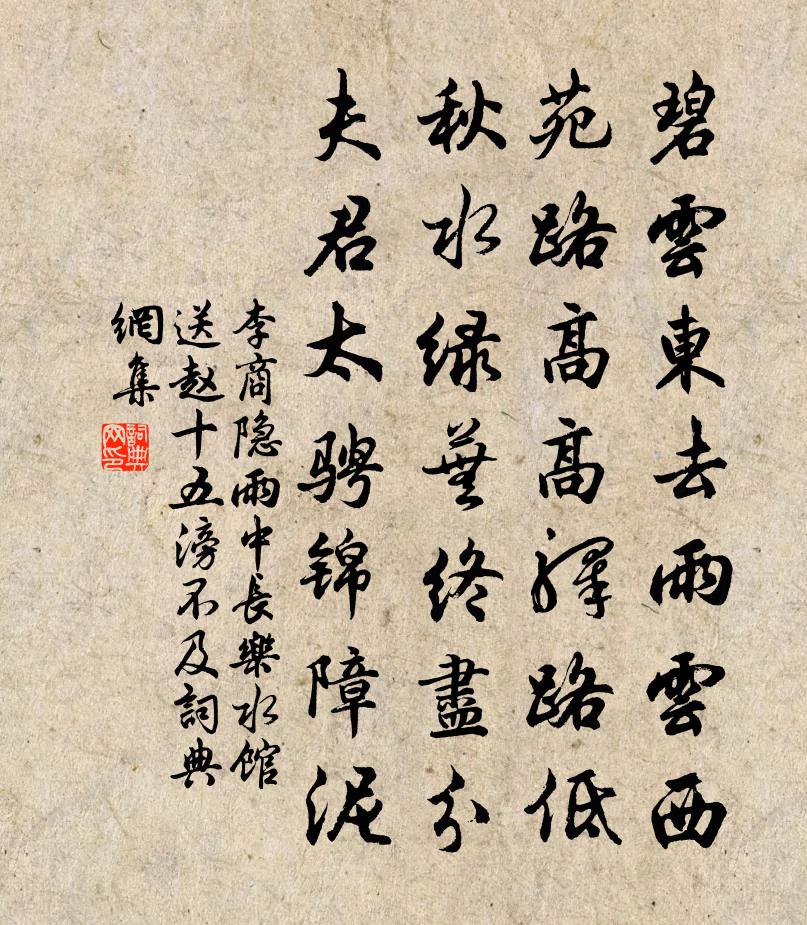 碧雲東去雨雲西
苑路高高驛路低
秋水绿蕪终盡分
夫君太骋锦障泥
李商隐雨中長樂水馆
送赵十五滂不及詞典
網集
詞典
网印